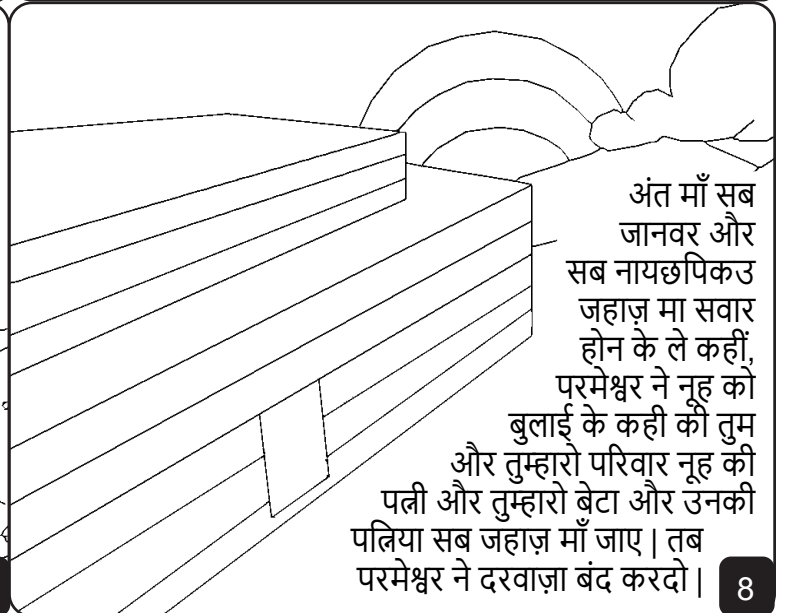 अंत माँ सब
जानवर और
सब नायछपिकउ
जहाज़ मा सवार
होन के ले कहीं,
परमेश्वर ने नूह को
बुलाई के कही की तुम
और तुम्हारो परिवार नूह की
पत्नी और तुम्हारो बेटा और उनकी
पत्निया सब जहाज़ माँ जाए | तब
परमेश्वर ने दरवाज़ा बंद करदो |
8